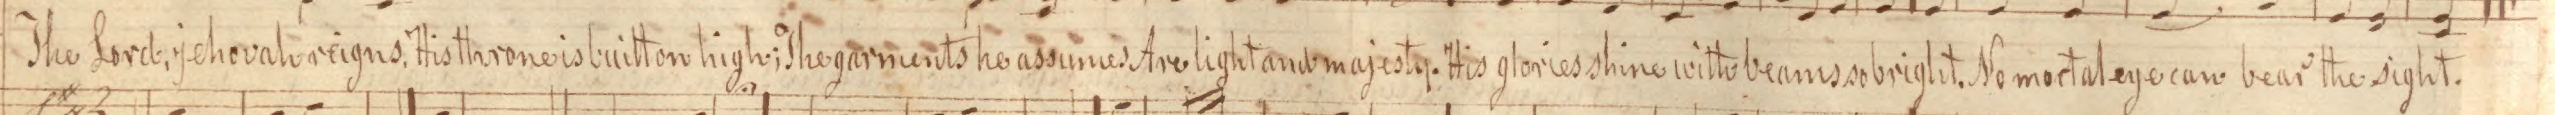 The Lord, jehovah reigns, His throne is built on high; The garments he assumes Are light and majesty. His glories shine with beams so bright. No mortal eye can bear the sight.